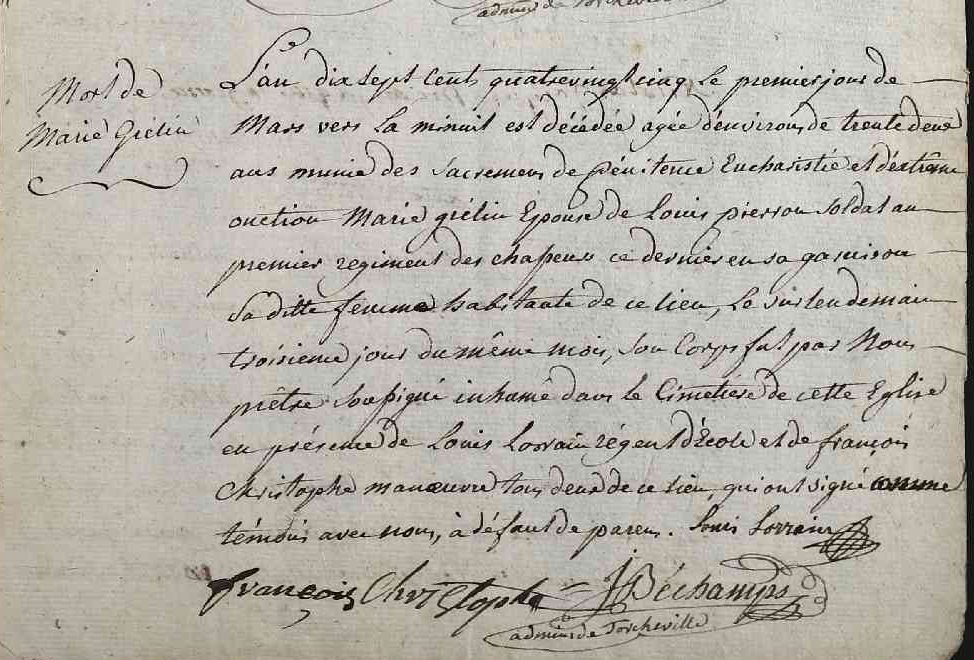 admin. de Torcheville
Mort de
Marie Griélin
L'an dix sept cents quatrevingt cinq le premier jour de
Mars vers la minuit est décédée agée d'environ de trente deux
ans munie des sacremens de pénitence Eucharistie et d'extrême
onction Marie griélin Epouse de Louis pierron soldat au
premier regiment des chasseurs ce dernier en sa garnison
Sa ditte femme habitante de ce lieu, Le surlendemain
troisieme jour du même mois, son Corps fut par Nous
prêtre soussigné inhumé dans le Cimetiere de cette Eglise
en présence de Louis Lorrain régent d'Ecole et de françois
Christophe manœuvre tous deux de ce lieu, qui ont signé comme
témoins avec nous, à défaut de parens. Louis Lorrain
françois Christophe J Déchamps
admin. de Torcheville